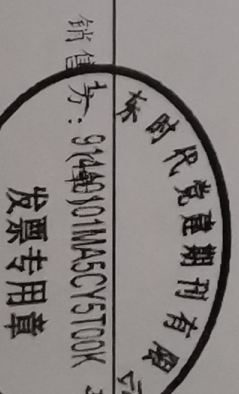 东时代党建期刊有限
销售方：（章）
91440101MA5CY5T00K
发票专用章